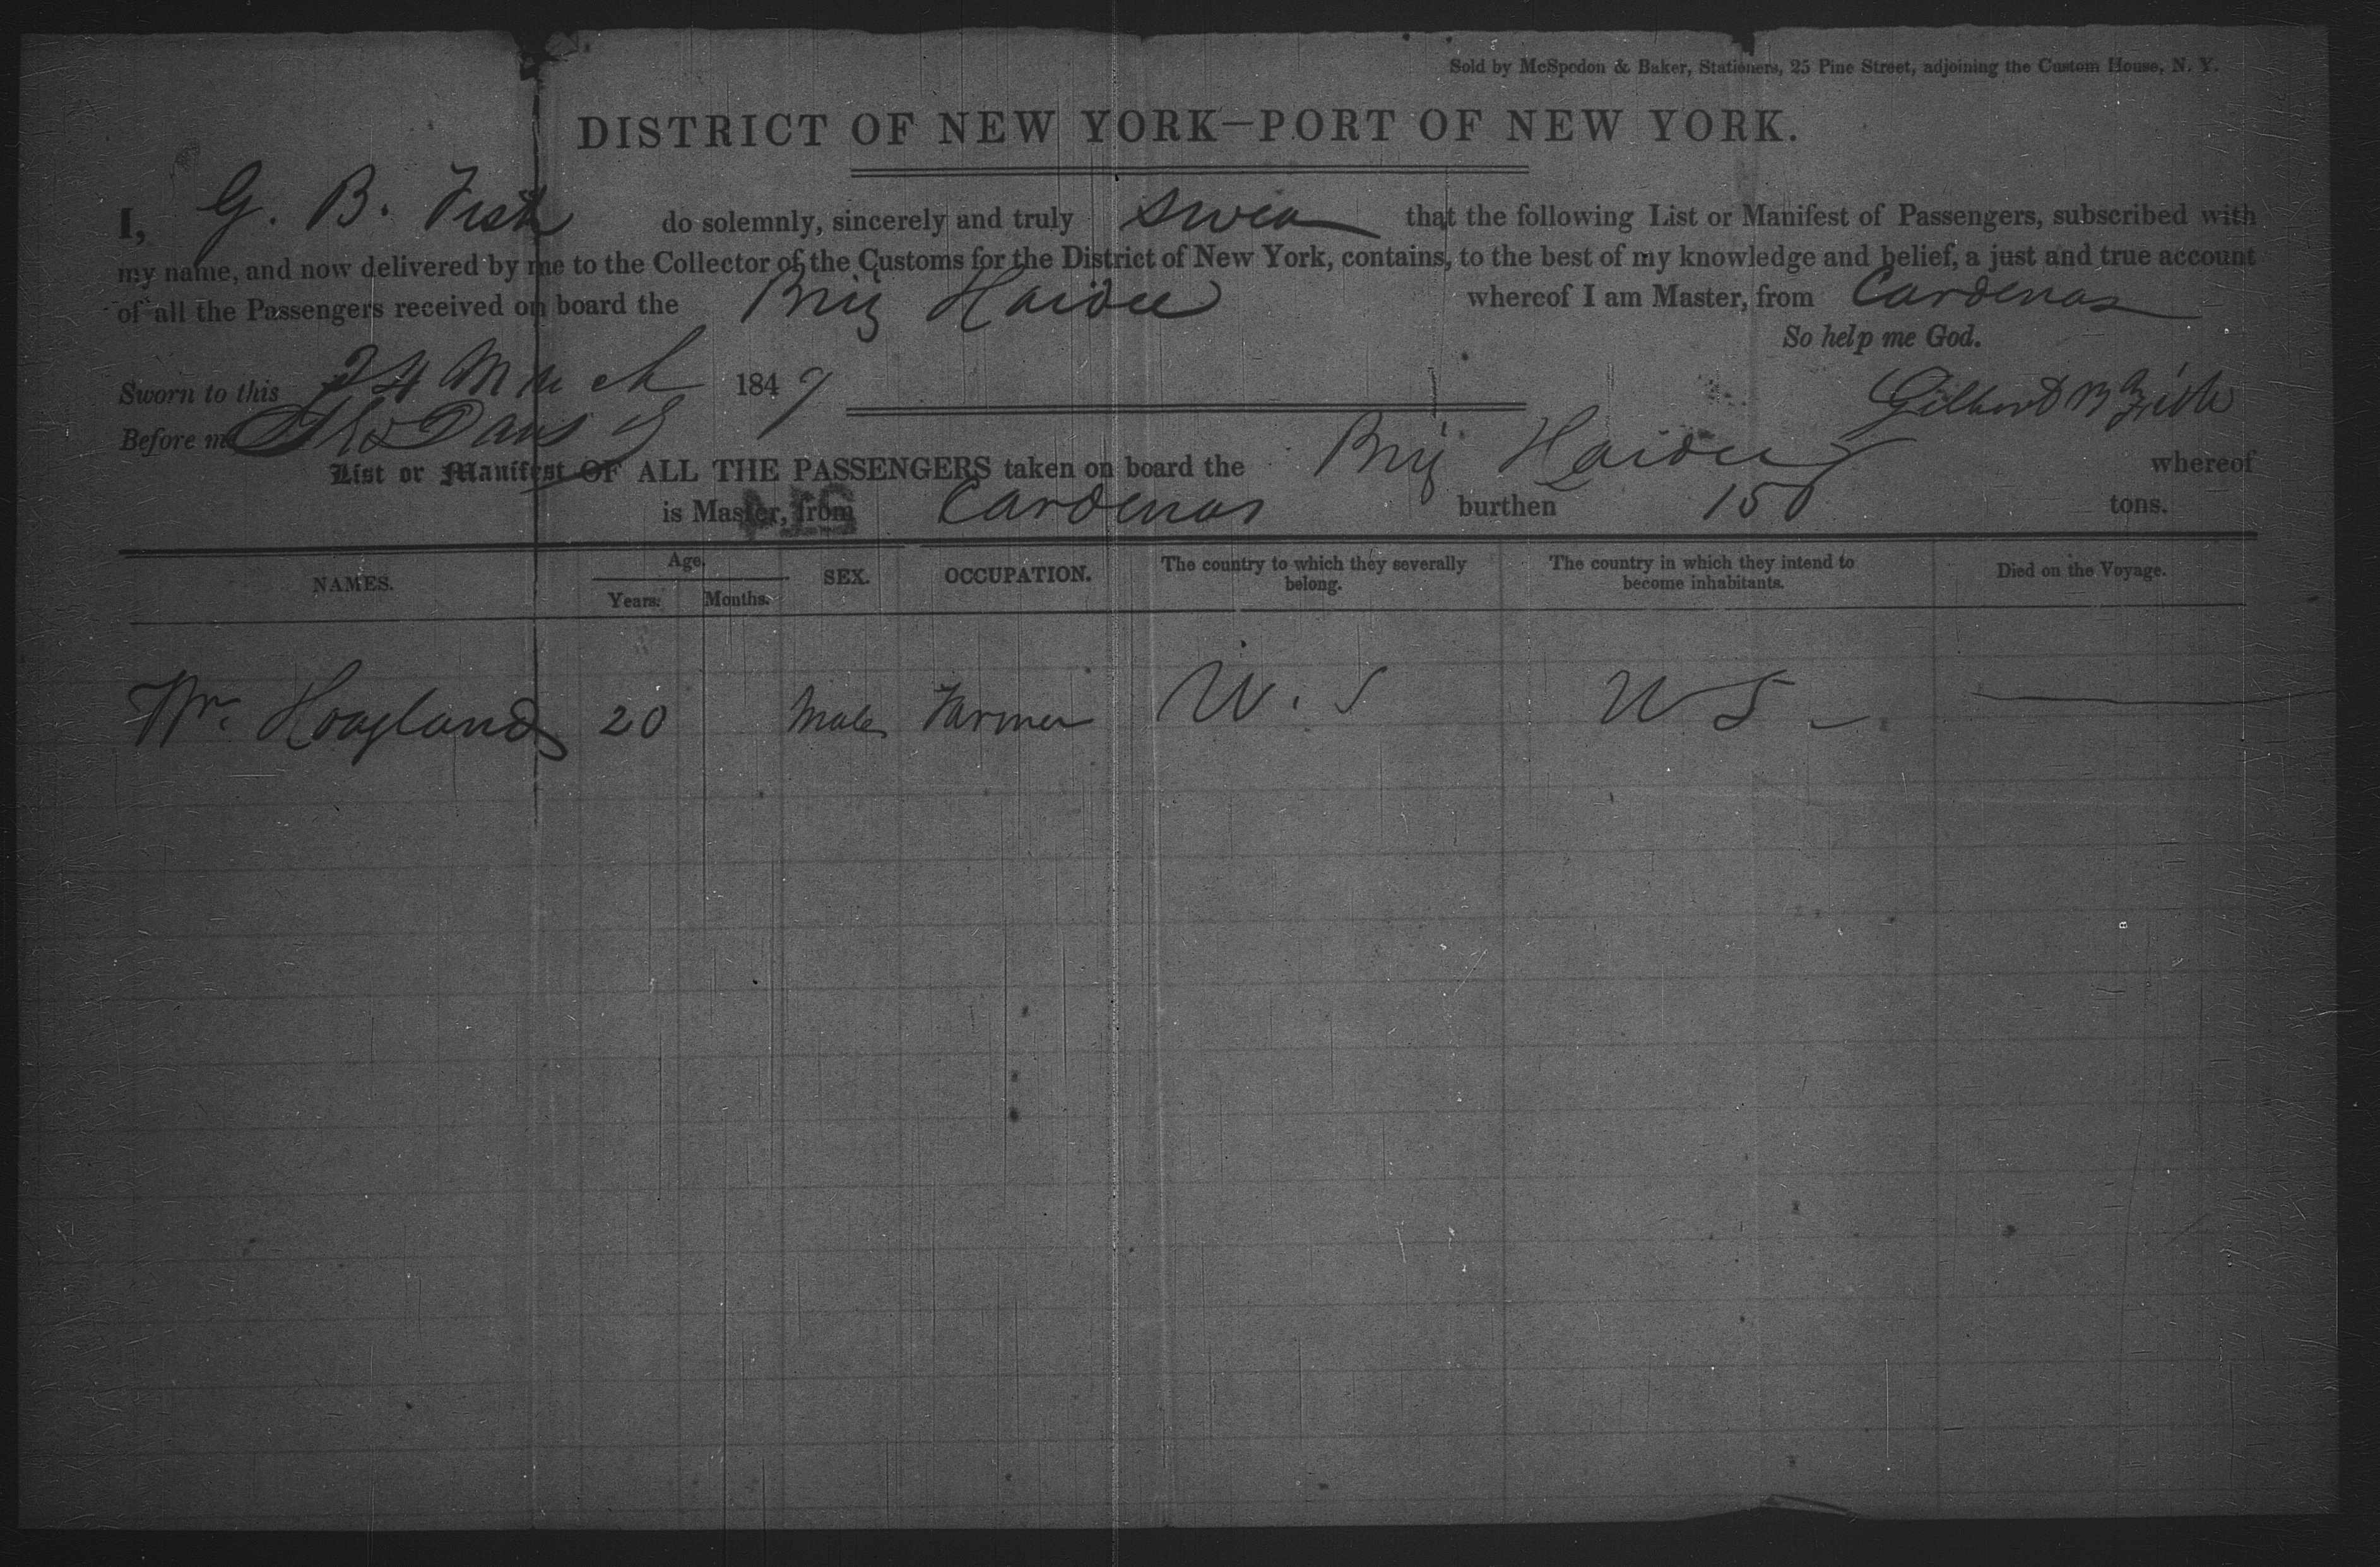 Sold by McSpedon & Baker, Stationers, 25 Pine Street, adjoining the Custom House, N. Y.
DISTRICT OF NEW YORK—PORT OF NEW YORK.
I, G. B. Fish do solemnly, sincerely and truly swear that the following List or Manifest of Passengers, subscribed with
my name, and now delivered by me to the Collector of the Customs for the District of New York, contains, to the best of my knowledge and belief, a just and true account
of all the Passengers received on board the Brig Haidee whereof I am Master, from Cardenas
So help me God.
Sworn to this 24 March 1847
Gilbert B Fish
Before me
List or Manifest OF ALL THE PASSENGERS taken on board the Brig Haidee whereof
is Master, from Cardenas burthen 150 tons.
NAMES. Age. Years. Months. SEX. OCCUPATION. The country to which they severally belong. The country in which they intend to become inhabitants. Died on the Voyage.
Wm Hoagland 20 Male Farmer U. S U S —